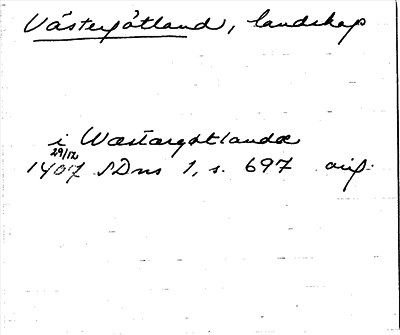 Västergötland, landskap
i Wæstargøtlandæ
29/12
1407 SDns 1, s. 697 avs.